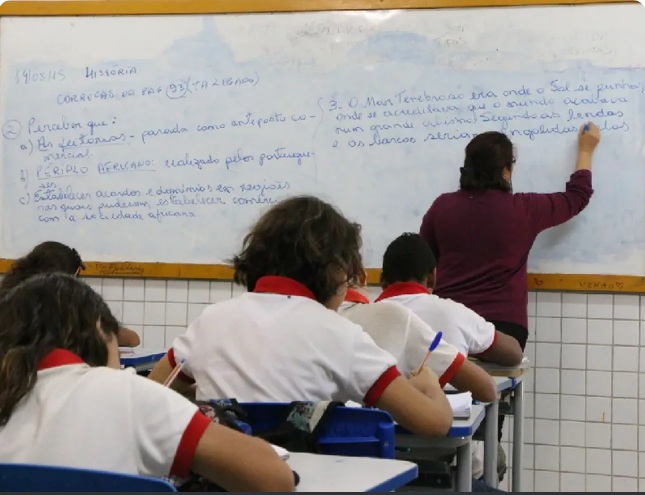 19/03/15 HISTÓRIA
CORREÇÃO DA PAG 93
2 Perceber que:
a) As feitorias - parada como entreposto co-
mercial.
b) PÉRIPLO AFRICANO: realizado pelos portugue-
ses
c) Estabelecer acordos e domínios em regiões
nas quais puderam estabelecer comérc
com a sociedade africana
3. O Mar Tenebroso era onde o Sol se punha,
onde se acreditava que o mundo acabava
num grande abismo. Segundo as lendas
e os barcos seriam engolidos pelos